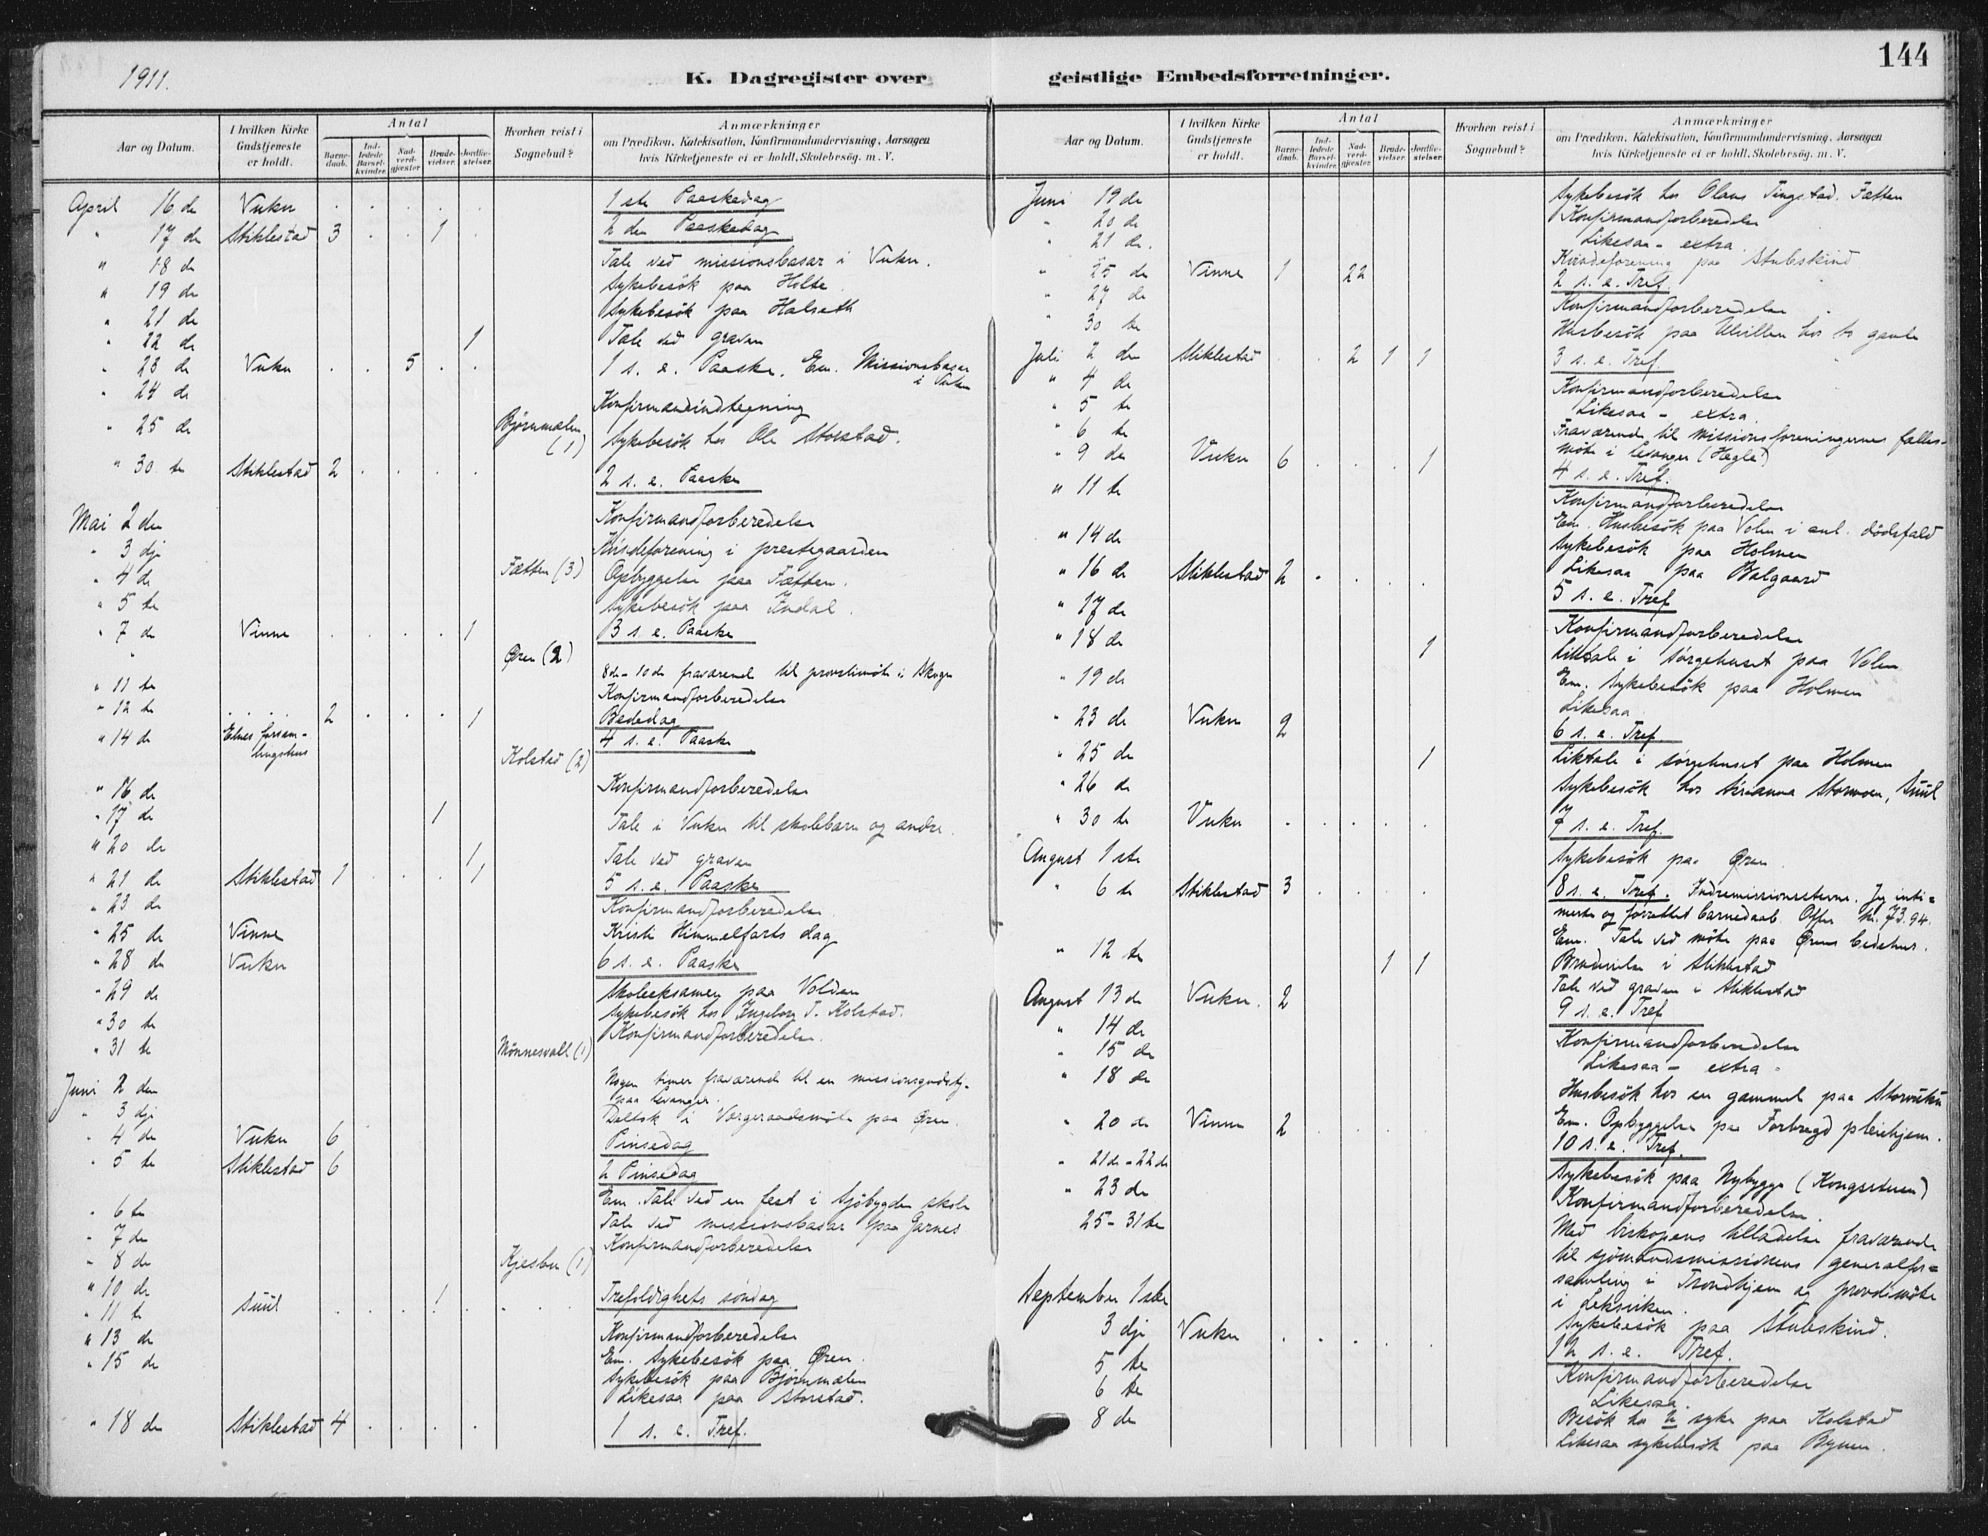 144
1911.
K. Dagregister over geistlige Embedsforretninger.
Aar og Datum. I hvilken Kirke Gudstjeneste er holdt. Antal Barnedaab. Indledede Barselkvinder. Nadverdgjæster Brudevielser. Jordfæstelser. Hvorhen reist i Sognebud? Anmærkninger om Prædiken, Katekisation, Konfirmandundervisning, Aarsagen hvis Kirketjeneste ei er holdt, Skolebesøg. m. V.
April 16 de Vuku . . . . . 1 ste Paaskedag
" 17 de Stiklestad 3 . . 1 2 den Paaskedag
" 18 de Tale ved missionsbasar i Vuku.
" 19 de Sykebesök paa Holte.
" 21 de Sykebesök paa Halseth
" 22 de 1 Tale ved graven
" 23 de Vuku . . 5 . . 1 s. e. Paaske. Em. Missionsbasar i Vuku
" 24 de Konfirmandindtegning
" 25 de Bjørnmælen (1) Sykebesök hos Ole Storstad.
" 30 te Stiklestad 2 . . . . 2 s. e. Paaske
Mai 2 den Konfirmandforberedelse
" 3 dje Kvindeforening i prestegaarden
" 4 de Fætten (3) Opbyggelse paa Fætten.
" 5 te Sykebesök paa Indal.
" 7 de Vinne . . . . 1 3 s. e. Paaske
" Øren (2) 8de - 10de fraværende til provstimöte i Skogn
" 11 te Konfirmandforberedelse
" 12 te . . . . 2 . . . 1 Bededag
" 14 de Elnes forsamlingshus 4 s. e. Paaske
Kolstad (2)
" 16 de Konfirmandforberedelse
" 17 de 1 Tale i Vuku til skolebarn og andre.
" 20 de 1 Tale ved graven
" 21 de Stiklestad 1 . . . 1 5 s. e. Paaske
" 23 de Konfirmandforberedelse
" 25 de Vinne Kristi Himmelfarts dag
" 28 de Vuku 6 s. e. Paaske
" 29 de Skoleeksamen paa Volden
" 30 te Sykebesök hos Ingeborg T. Kolstad.
" 31 te Mønnesvald (1) Konfirmandforberedelse.
Juni 2 den Nogen timer fraværende til en missionsgudstj. paa Levanger.
" 3 dje Deltok i Vergeraadsmöte paa Øren.
" 4 de Vuku 6 Pinsedag
" 5 te Stiklestad 6 2 Pinsedag
Em. Tale ved en fest i Sjöbygden skole
" 6 te Tale ved missionsbasar paa Garnes
" 7 de Konfirmandforberedelse
" 8 de Kjesbu (1)
" 10 de 1 Trefoldighets söndag
" 11 te Suul . . . . . .
" 13 de Konfirmandforberedelse
Em. Sykebesök paa Øren.
" 15 de Sykebesök paa Bjørnmælen
Likesaa paa Storstad.
" 18 de Stiklestad 4 . . . . 1 s. e. Tref.
Aar og Datum. I hvilken Kirke Gudstjeneste er holdt. Antal Barnedaab. Indledede Barselkvinder. Nadverdgjæster Brudevielser. Jordfæstelser. Hvorhen reist i Sognebud? Anmærkninger om Prædiken, Katekisation, Konfirmandundervisning, Aarsagen hvis Kirketjeneste ei er holdt, Skolebesøg. m. V.
Juni 19 de Sykebesök hos Olaus Tingstad. Fætten
" 20 de Konfirmandforberedelse
" 21 de. Likesaa - extra
Kvindeforening paa Stubskind
" 25 de Vinne 1 22 2 s. e. Tref.
" 27 de Konfirmandforberedelse
" 30 te Husbesök paa Ulvillen hos to gamle
Juli 2 den Stiklestad . . 2 1 1 3 s. e. Tref
" 4 de Konfirmandforberedelse
" 5 te Likesaa - extra.
" 6 te Fraværende til missionsforeningernes fællesmöte i Levanger (Hegle)
" 9 de Vuku 6 . . . 1 4 s. e. Tref.
" 11 te Konfirmandforberedelse
Em. Husbesök paa Volen i anl. dödsfald
" 14 de Sykebesök paa Holmen
Likesaa paa Balgaard
" 16 de Stiklestad 2 . . . . 5 s. e. Tref
" 17 de Konfirmandforberedelse
" 18 de 1 Liktale i sørgehuset paa Volen
Em. Sykebesök paa Holmen
" 19 de Likesaa
" 23 de Vuku 2 6 s. e. Tref
" 25 de 1 Liktale i sørgehuset paa Holmen
" 26 de Sykebesök hos Stormoen, Suul
" 30 te Vuku . . . . . 7 s. e. Tref.
August 1 ste Sykebesök paa Øren
" 6 te Stiklestad 3 . . . . 8 s. e. Tref. Indremissionsstevne. Jeg intimerte og forrettet barnedaab. Offer kr. 73.94.
Em. Tale ved möte paa Ørens bedehus.
" 12 te 1 1 Brudevielse i Stiklestad
Tale ved graven i Stiklestad
August 13 de Vuku. 2 9 s. e. Tref
" 14 de Konfirmandforberedelse
" 15 de Likesaa - extra
" 18 de Husbesök hos en gammel paa Storvuku
Em. Opbyggelse paa Forbregd pleiehjem.
" 20 de Vinne 2 . . . . 10 s. e. Tref.
" 21 de - 22 de Sykebesök paa Nybygge (Kongsstuen)
" 23 de Konfirmandforberedelse.
25 - 31 te Med biskopens tilladelse fraværende til sjömandsmissionens generalforsamling i Trondhjem og provstimöte i Leksviken.
September 1ste Sykebesök paa Stubskind.
3 dje Vuku . . . . . 12 s. e. Tref.
5 te Konfirmandforberedelse
6 te Likesaa.
8 de Besök hos 2 syke paa Kolstad
Likesaa sykebesök paa Bynen.